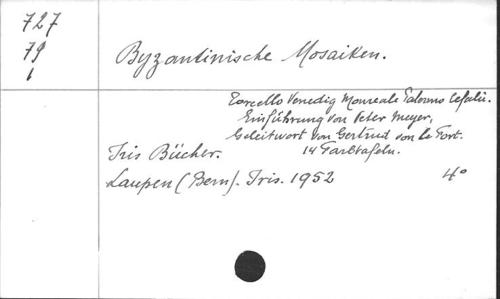 727
79
1
Byzantinische Mosaiken.
Torcello Venedig Monreale Palermo Cefalù.
Einführung von Peter Meyer,
Geleitwort von Gertrud von le Fort.
14 Farbtafeln.
Iris Bücher.
Laupen (Bern). Iris. 1952
4°